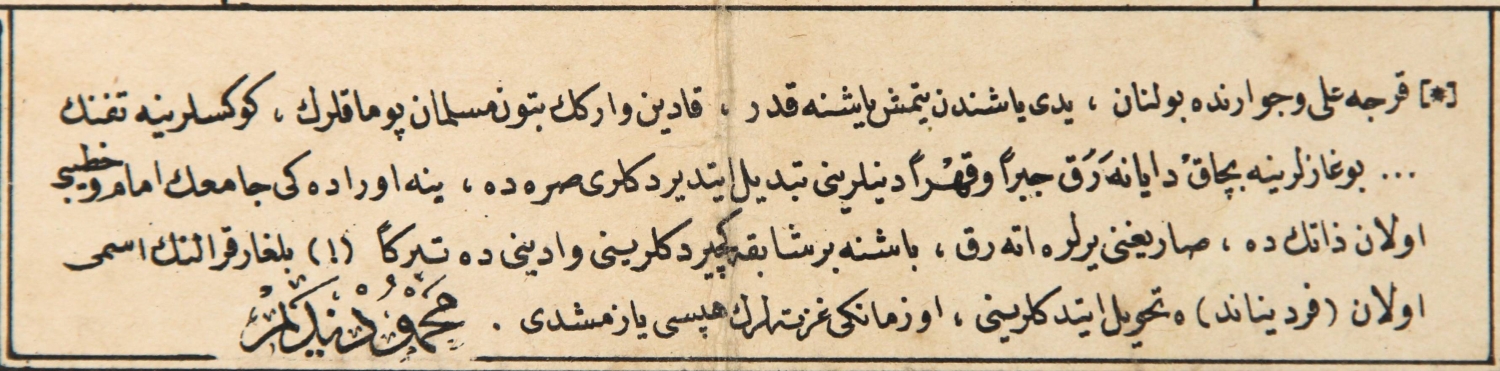 [*] قرجه علی و جوارنده بولنان ، یدی یاشندن یتمش یاشنه قدر ، قادین و ارکك بتون مسلمان پوماقلرك ، كوكسلرینه تفنك
... بوغازلرینه بچاق دایانه رق جبراً و قهراً دینلرینی تبدیل ایتدیردكلری صره ده ، ینه اوراده كی جامعك امام و خطیبی
اولان ذاتك ده ، صاریغنی یرلره اته رق ، باشنه بر شابقه كییردكلرینی و ادینی ده تبركاً (!) بلغار قرالنك اسمی
اولان (فردیناند) ه تحویل ایتدكلرینی ، او زمانكی غزته لرك هپسی یازمشدی .